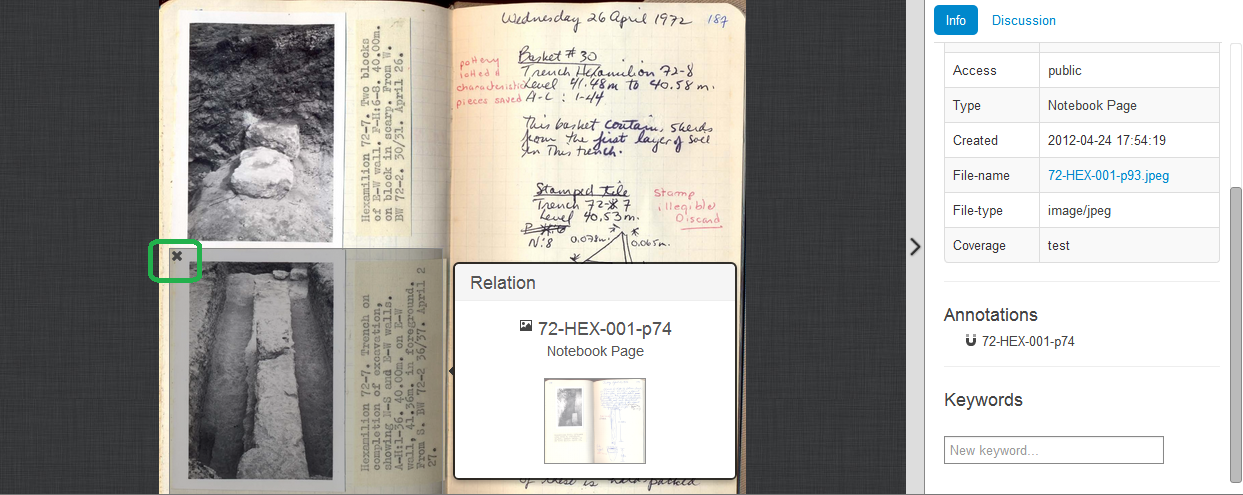 Hexamilion 72-7. Two blocks
of E-W wall. F-H:6-8. 40.00m.
on block in scarp. From W.
BW 72-2. 30/31. April 26.
Hexamilion 72-7. Trench on
completion of excavation,
showing N-S and E-W walls.
A-H:1-36. 40.00m. on E-W
wall, 41.36m. in foreground.
From S. BW 72-2 36/37. April 2
27.
Wednesday 26 April 1972
187
Basket # 30
Trench Hexamilion 72-8
Level 41.48m to 40.58 m.
A-L : 1-44
pottery
lotted &
characteristic
pieces saved
This basket contains sherds
from the first layer of soil
in this trench.
Stamped tile
Trench 72-7
Level 40.53m.
N:8
0.078m.
0.065m.
Stamp
illegible
Discard
of these is hard packed
Relation
72-HEX-001-p74
Notebook Page
Info
Discussion
Access public
Type Notebook Page
Created 2012-04-24 17:54:19
File-name 72-HEX-001-p93.jpeg
File-type image/jpeg
Coverage test
Annotations
72-HEX-001-p74
Keywords
New keyword...